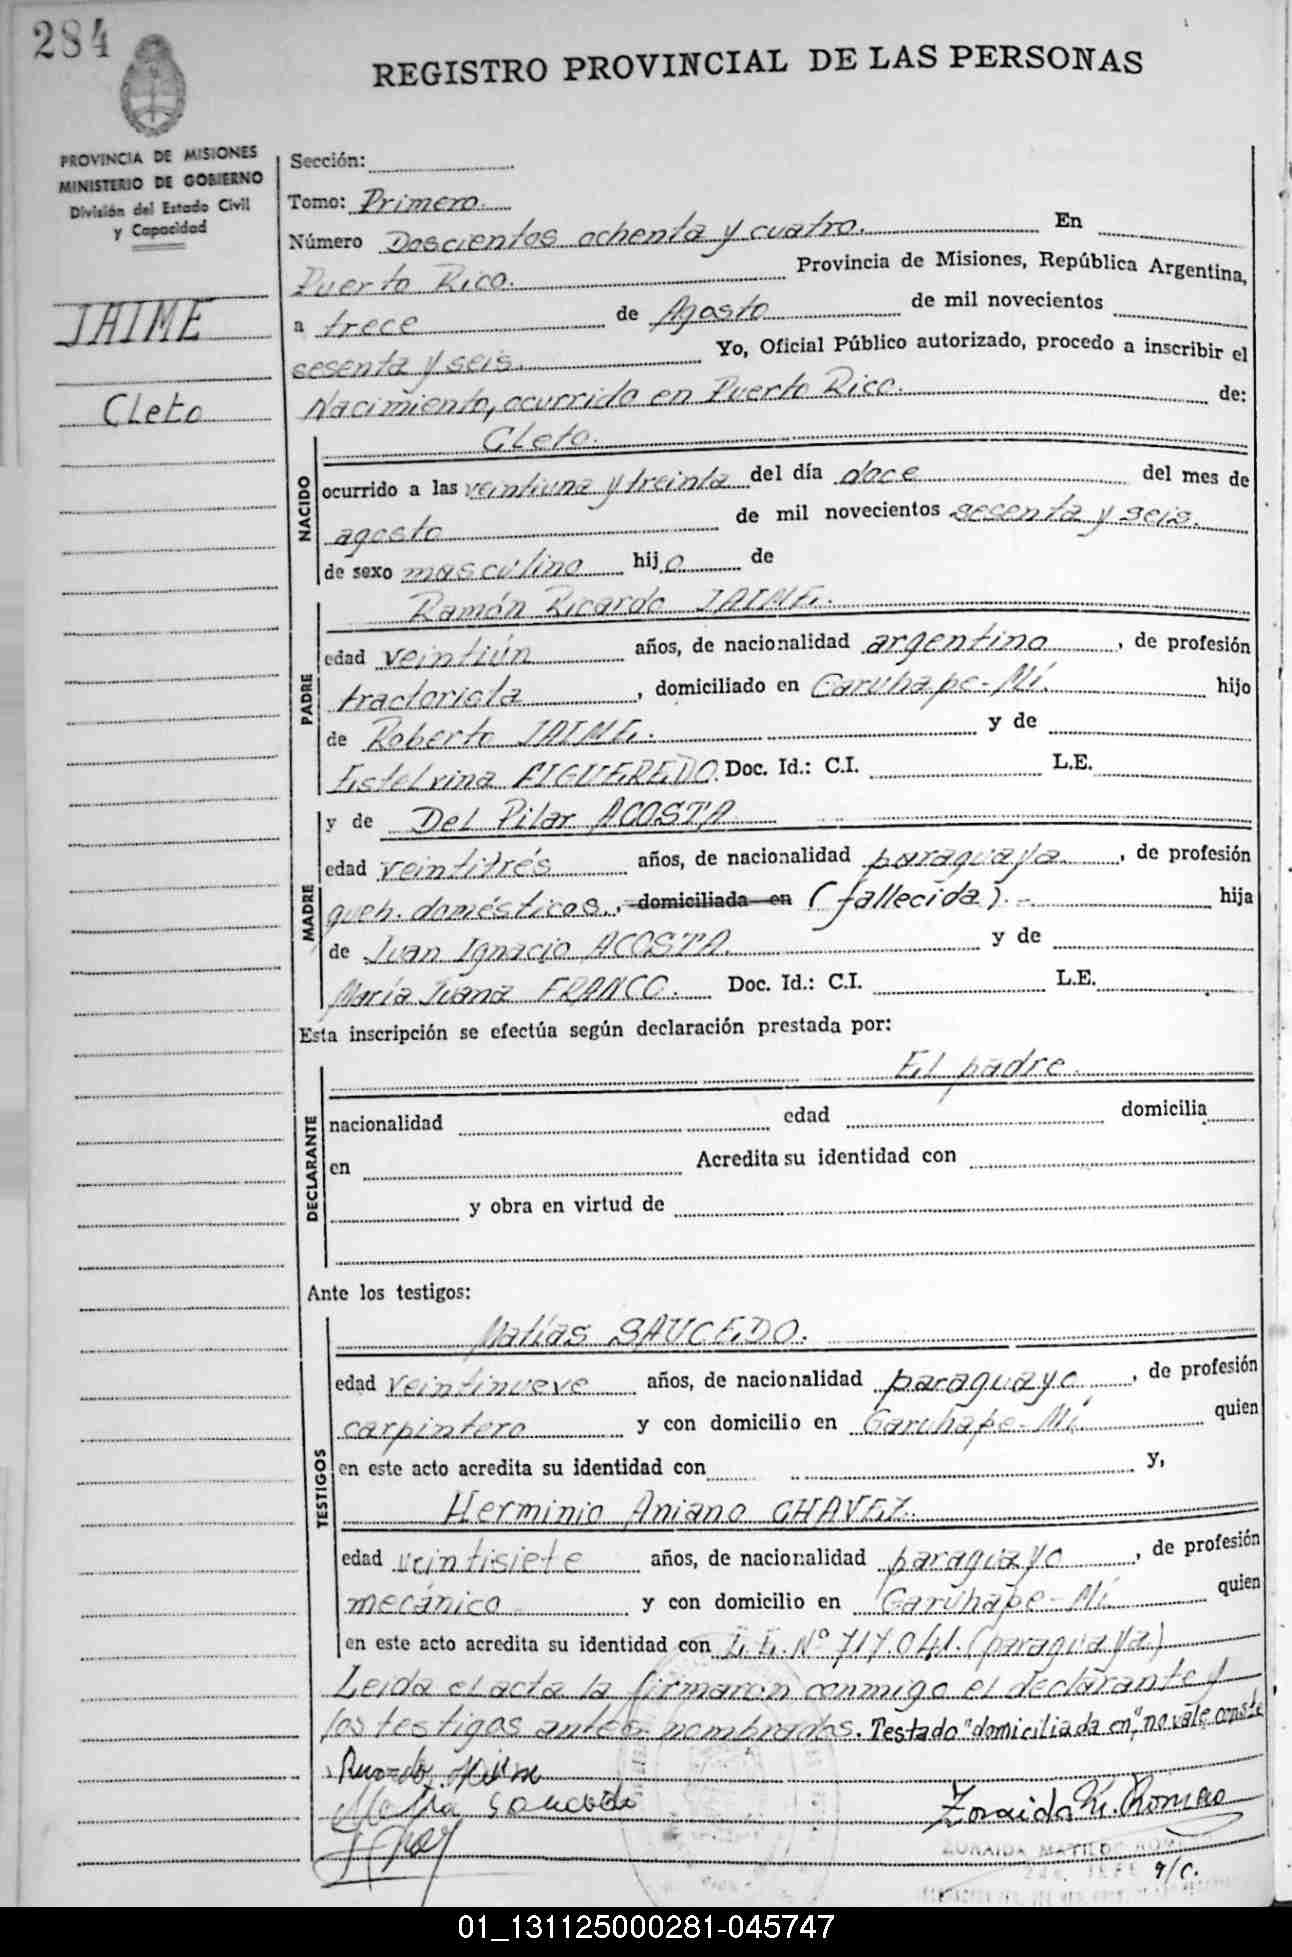 284
REGISTRO PROVINCIAL DE LAS PERSONAS
PROVINCIA DE MISIONES
MINISTERIO DE GOBIERNO
División del Estado Civil
y Capacidad
JAIME
Cleto
Sección:
Tomo: Primero.
Número Doscientos ochenta y cuatro. En
Puerto Rico. Provincia de Misiones, República Argentina,
a trece de Agosto de mil novecientos
sesenta y seis. Yo, Oficial Público autorizado, procedo a inscribir el
Nacimiento, ocurrido en Puerto Rico. de:
NACIDO
Cleto.
ocurrido a las veintiuna y treinta del día doce del mes de
agosto de mil novecientos sesenta y seis.
de sexo masculino hijo de
PADRE
Ramón Ricardo JAIME.
edad veintiún años, de nacionalidad argentino, de profesión
tractorista, domiciliado en Garuhape-Mí. hijo
de Roberto JAIME. y de
Estelvina FIGUEREDO. Doc. Id.: C.I. L.E.
MADRE
y de Del Pilar ACOSTA
edad veintitrés años, de nacionalidad paraguaya, de profesión
queh. domésticos, domiciliada en (fallecida). hija
de Juan Ignacio ACOSTA. y de
María Juana FRANCO. Doc. Id.: C.I. L.E.
Esta inscripción se efectúa según declaración prestada por:
DECLARANTE
El padre.
nacionalidad edad domicilia
en Acredita su identidad con
y obra en virtud de
Ante los testigos:
TESTIGOS
Matías SAUCEDO.
edad veintinueve años, de nacionalidad paraguayo, de profesión
carpintero y con domicilio en Garuhape-Mí, quien
en este acto acredita su identidad con y,
Herminio Aniano CHAVEZ.
edad veintisiete años, de nacionalidad paraguayo, de profesión
mecánico y con domicilio en Garuhape-Mí quien
en este acto acredita su identidad con Nº 717.041. (paraguaya)
Leída el acta la firmaron conmigo el declarante y
los testigos antes nombrados. Testado "domiciliada en", no vale, conste
Zoraida M. Romero
ZORAIDA MATILDE
a/c.
01_131125000281-045747